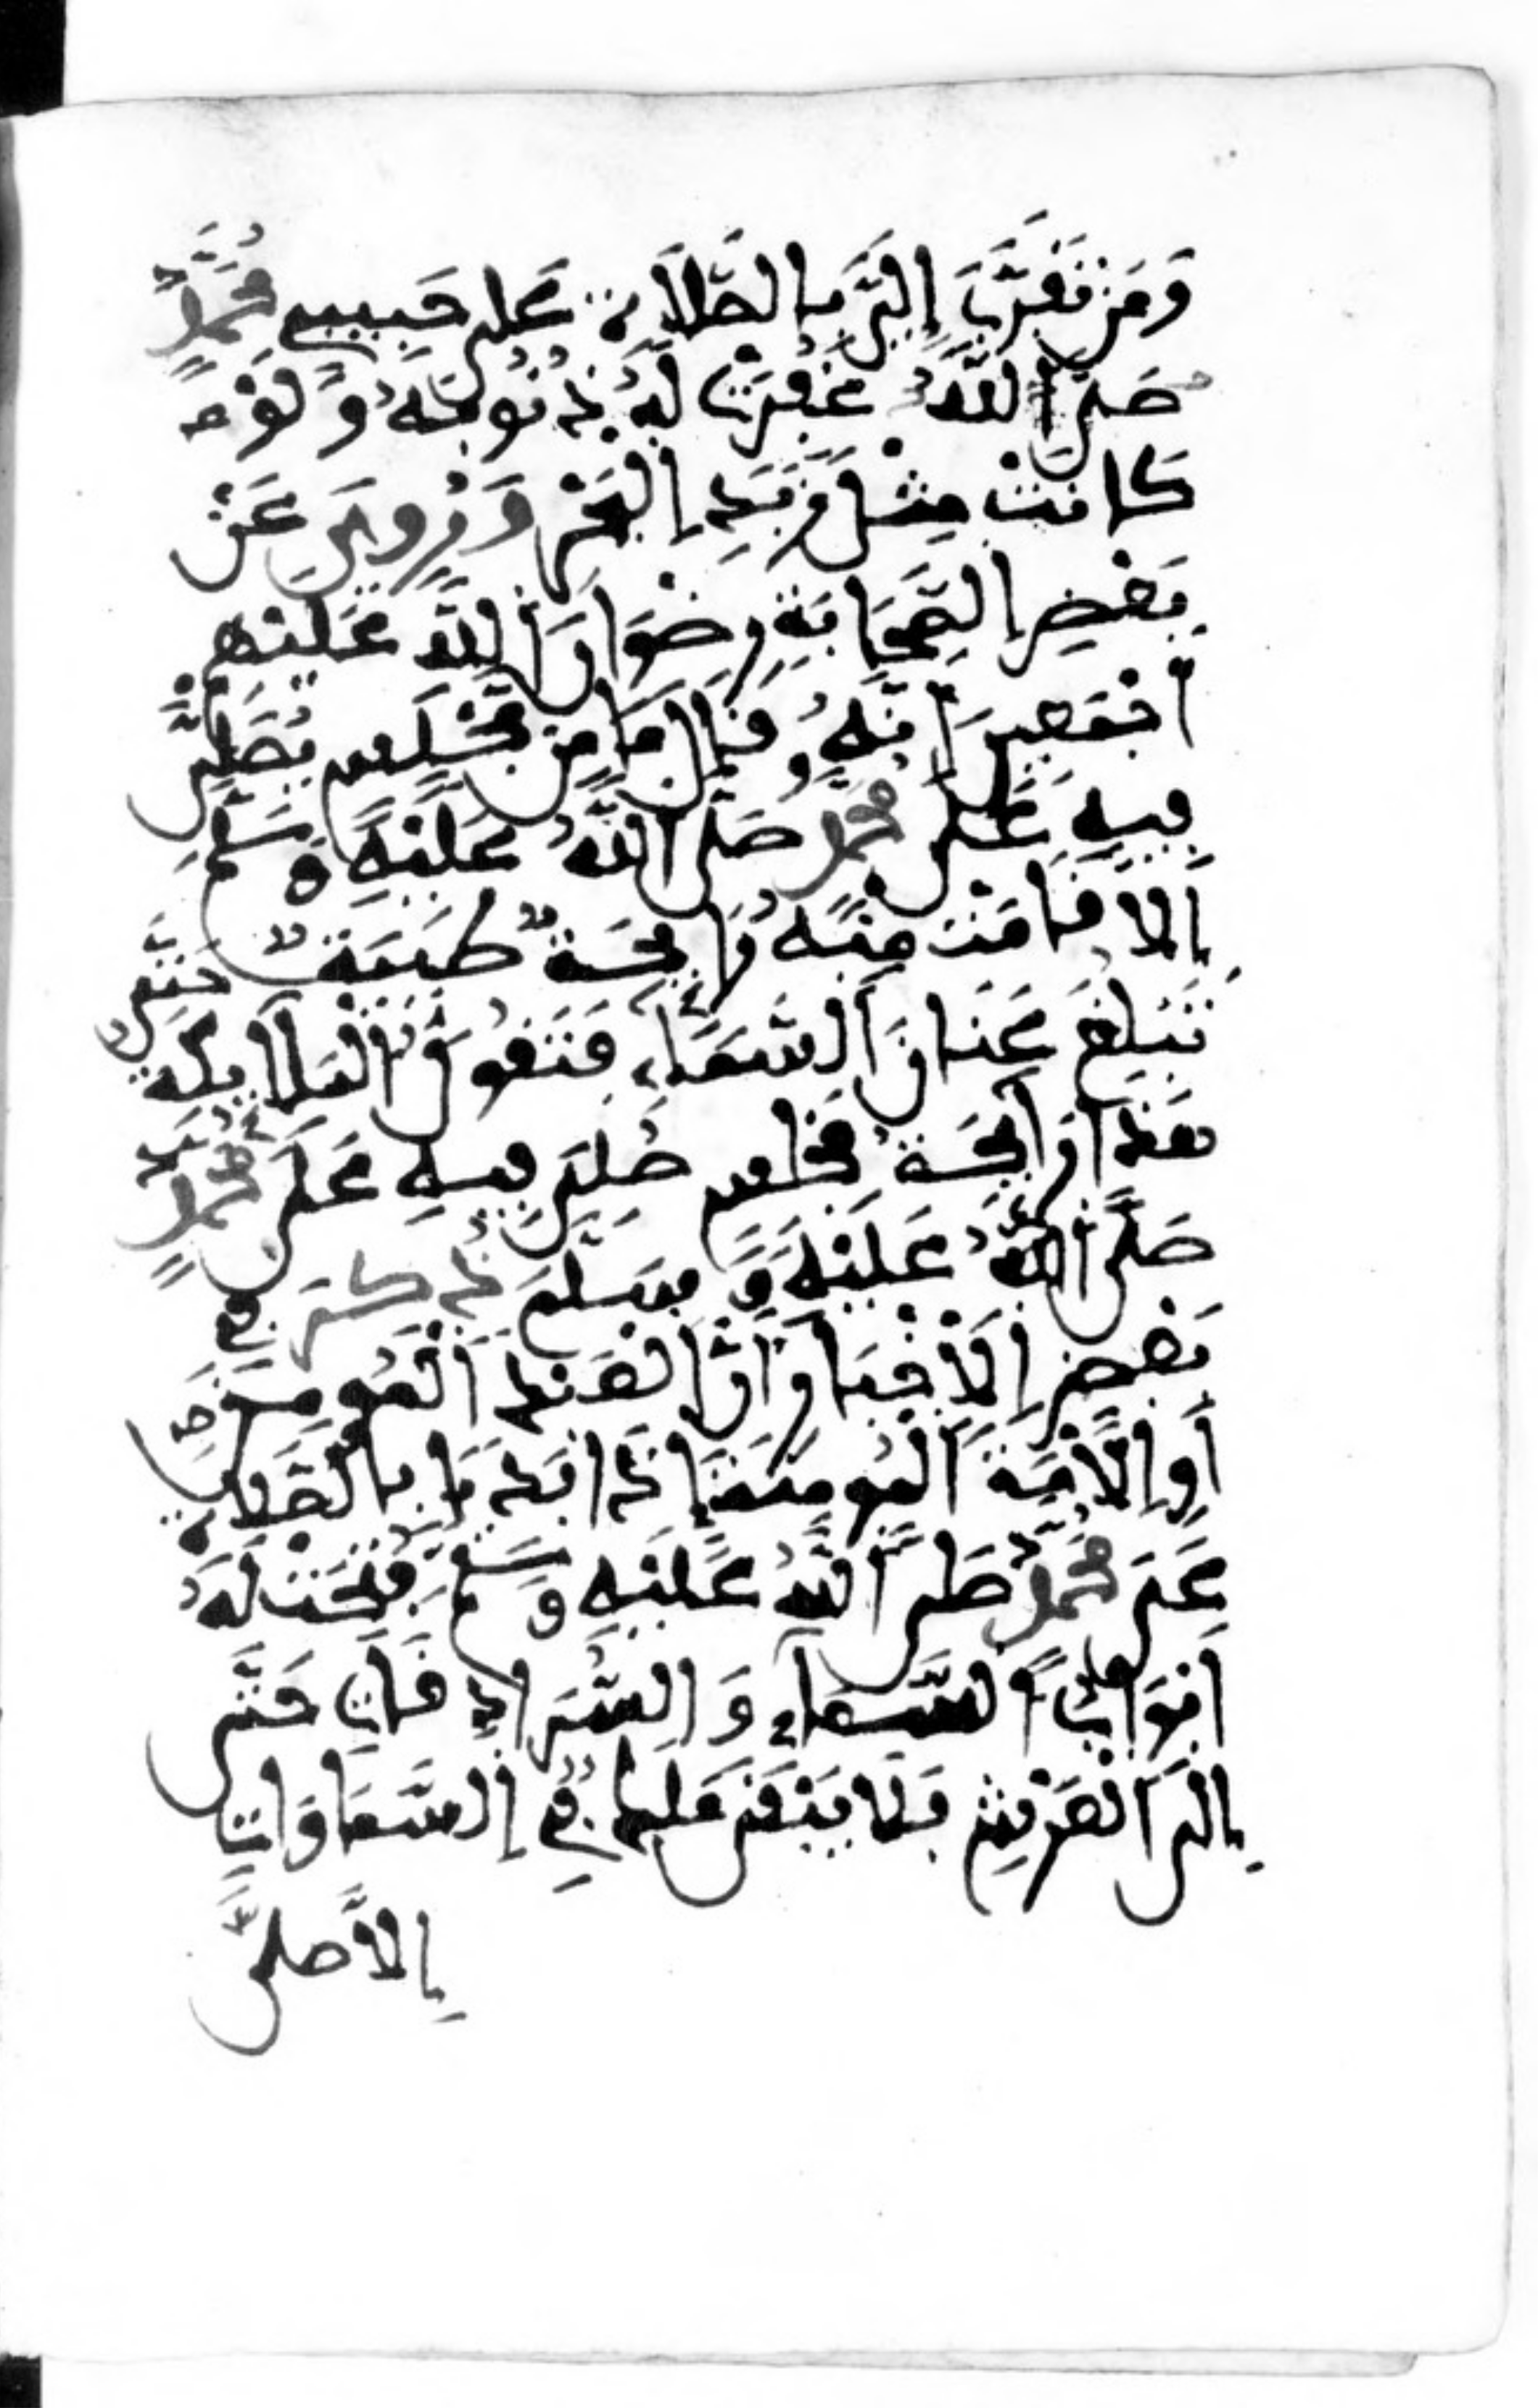 وَمَن تَقَرَّبَ إِلَيَّ بِالصَّلَاةِ عَلَى حَبِيبِي مُحَمَّدٍ
صَلَّى اللَّهُ غَفَرْتُ لَهُ ذُنُوبَهُ وَلَوْ
كَانَتْ مِثْلَ زَبَدِ الْبَحْرِ وَرُوِيَ عَنْ
بَعْضِ الصَّحَابَةِ رِضْوَانُ اللَّهِ عَلَيْهِمْ
أَجْمَعِينَ أَنَّهُ قَالَ مَا مِن مَجْلِسٍ يُصَلَّى
فِيهِ عَلَى مُحَمَّدٍ صَلَّى اللَّهُ عَلَيْهِ وَسَلَّمَ
إِلَّا قَامَتْ مِنْهُ رَائِحَةٌ طَيِّبَةٌ حَتَّى
تَبْلُغَ عَنَانَ السَّمَاءِ فَتَقُولُ الْمَلَائِكَةُ
هَذَا رَائِحَةُ مَجْلِسٍ صُلِّيَ فِيهِ عَلَى مُحَمَّدٍ
صَلَّى اللَّهُ عَلَيْهِ وَسَلَّمَ ذُكِرَ فِي
بَعْضِ الْأَخْبَارِ أَنَّ الْعَبْدَ الْمُومِنَ
أَوِ الْأَمَةَ الْمُومِنَةَ إِذَا بَدَأَ بِالصَّلَاةِ
عَلَى مُحَمَّدٍ صَلَّى اللَّهُ عَلَيْهِ وَسَلَّمَ فُتِحَتْ لَهُ
أَبْوَابُ السَّمَاءِ وَالسُّرَادِقَاتِ حَتَّى
إِلَى الْعَرْشِ فَلَا يَبْقَى مَلَكٌ فِي السَّمَاوَاتِ
إِلَّا صَلَّى